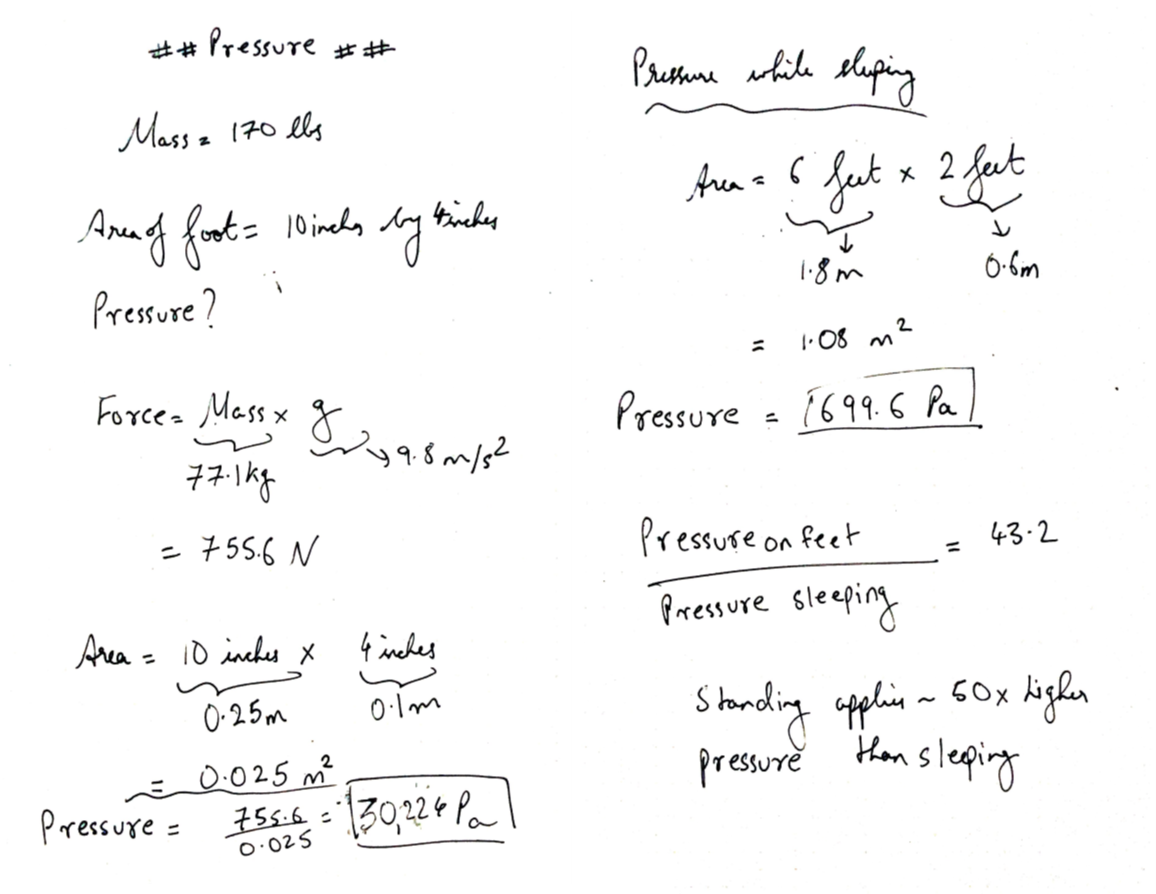 ## Pressure ##
Mass = 170 lbs
Area of foot = 10 inches by 4 inches
Pressure?
Force = Mass x g
77.1kg
→ 9.8 m/s²
= 755.6 N
Area = 10 inches x 4 inches
0.25m 0.1m
= 0.025 m²
Pressure = 755.6 / 0.025 = 30,224 Pa
Pressure while sleeping
Area = 6 feet x 2 feet
1.8m 0.6m
= 1.08 m²
Pressure = 699.6 Pa
Pressure on feet = 43.2
Pressure sleeping
Standing applies ~ 50x higher
pressure than sleeping